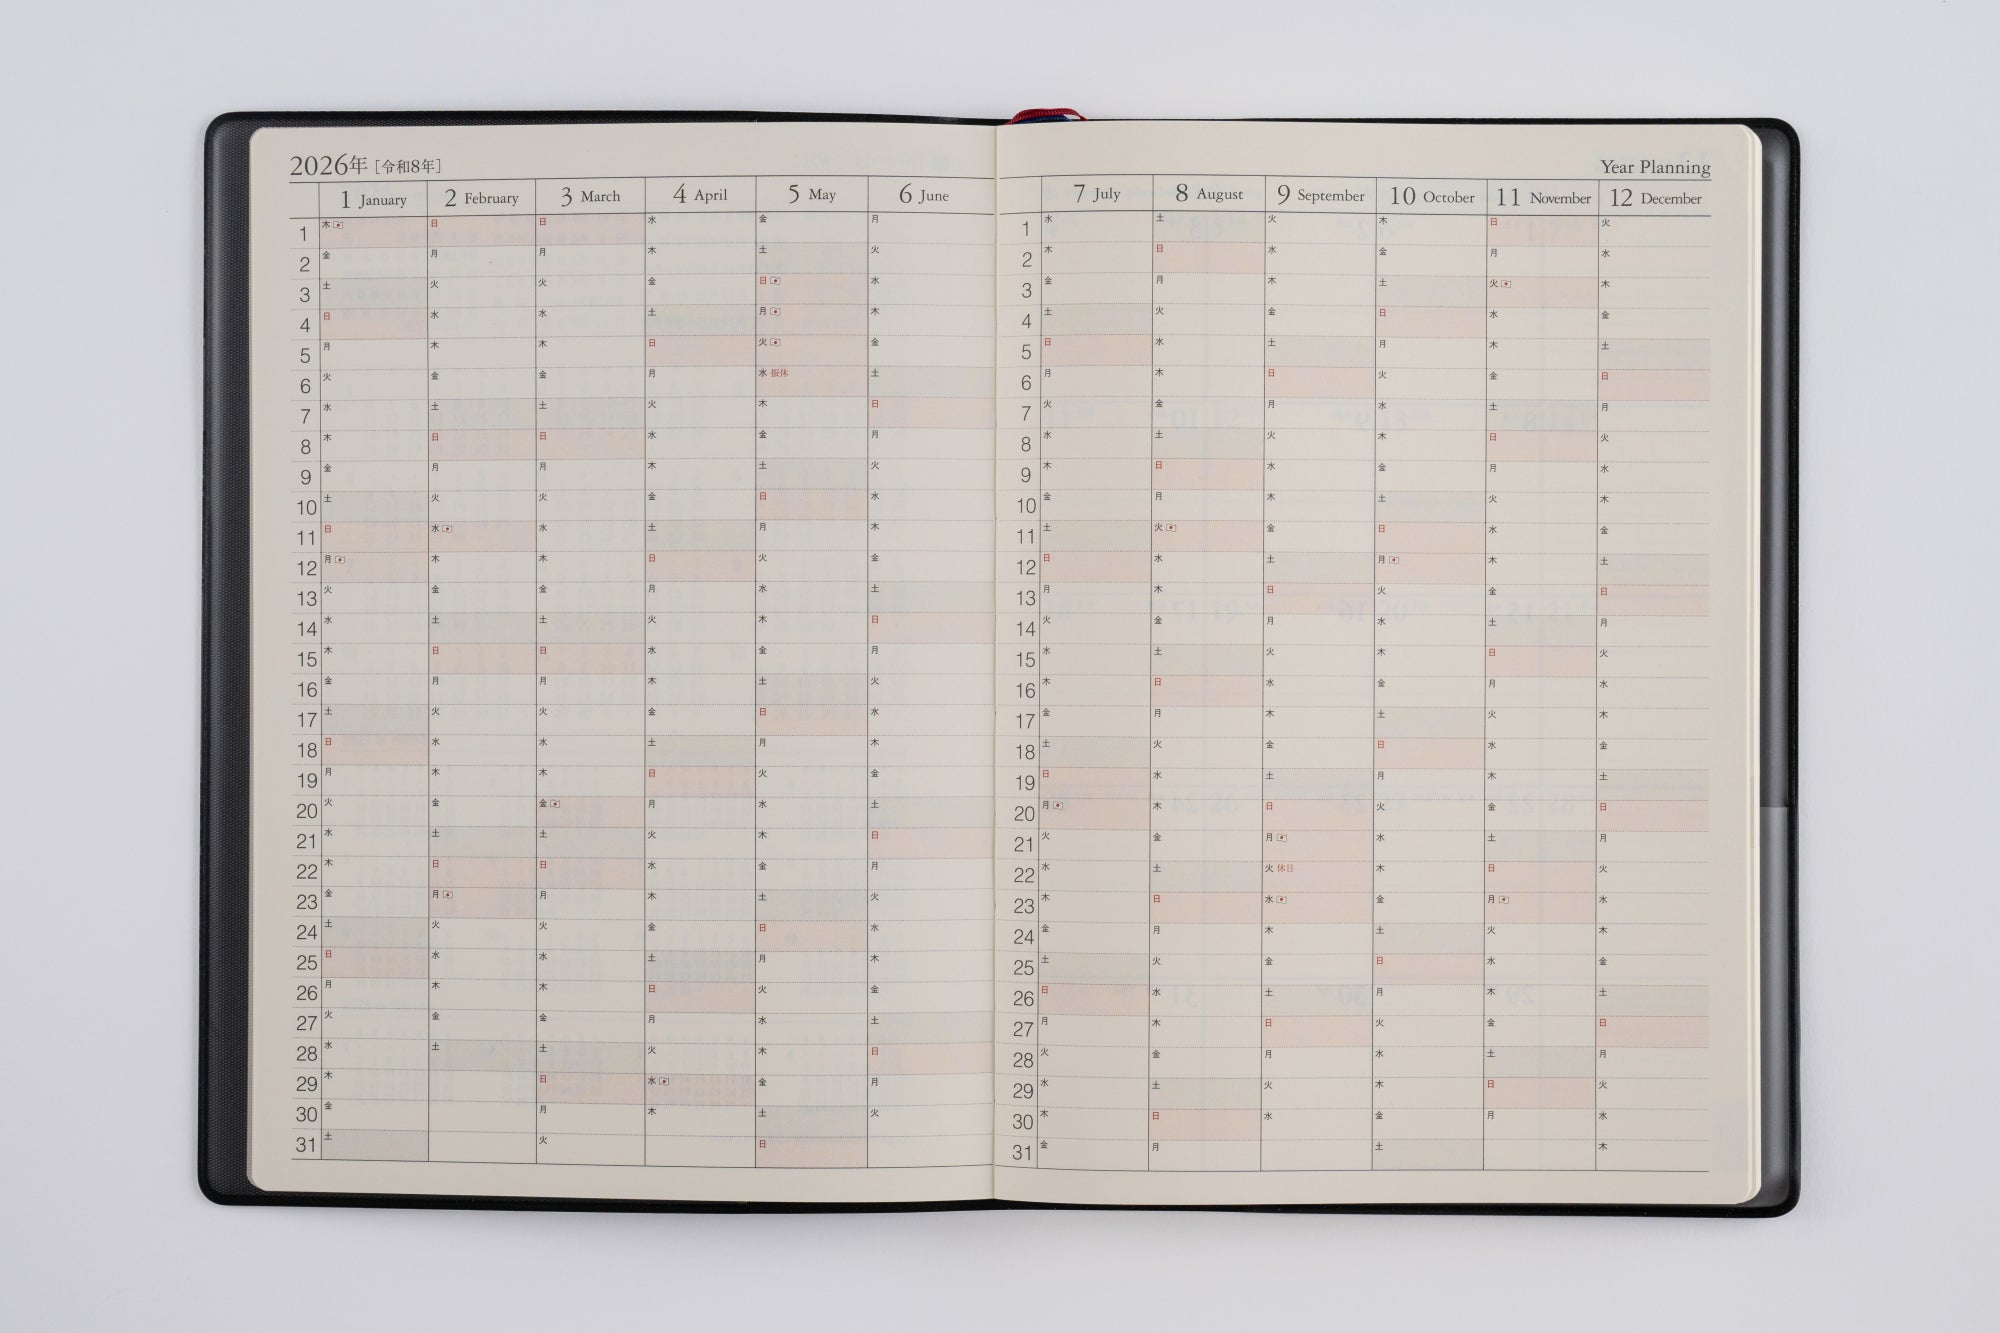 2026年 [令和8年]
Year Planning
1 January 2 February 3 March 4 April 5 May 6 June 7 July 8 August 9 September 10 October 11 November 12 December
1 木 日 日 水 金 月 1 水 土 火 木 日 火
2 金 月 月 木 土 火 2 木 日 水 金 月 水
3 土 火 火 金 日 水 3 金 月 木 土 火 木
4 日 水 水 土 月 木 4 土 火 金 日 水 金
5 月 木 木 日 火 金 5 日 水 土 月 木 土
6 火 金 金 月 水 振休 土 6 月 木 日 火 金 日
7 水 土 土 火 木 日 7 火 金 月 水 土 月
8 木 日 日 水 金 月 8 水 土 火 木 日 火
9 金 月 月 木 土 火 9 木 日 水 金 月 水
10 土 火 火 金 日 水 10 金 月 木 土 火 木
11 日 水 水 土 月 木 11 土 火 金 日 水 金
12 月 木 木 日 火 金 12 日 水 土 月 木 土
13 火 金 金 月 水 土 13 月 木 日 火 金 日
14 水 土 土 火 木 日 14 火 金 月 水 土 月
15 木 日 日 水 金 月 15 水 土 火 木 日 火
16 金 月 月 木 土 火 16 木 日 水 金 月 水
17 土 火 火 金 日 水 17 金 月 木 土 火 木
18 日 水 水 土 月 木 18 土 火 金 日 水 金
19 月 木 木 日 火 金 19 日 水 土 月 木 土
20 火 金 金 月 水 土 20 月 木 日 火 金 日
21 水 土 土 火 木 日 21 火 金 月 水 土 月
22 木 日 日 水 金 月 22 水 土 火 休日 木 日 火
23 金 月 月 木 土 火 23 木 日 水 金 月 水
24 土 火 火 金 日 水 24 金 月 木 土 火 木
25 日 水 水 土 月 木 25 土 火 金 日 水 金
26 月 木 木 日 火 金 26 日 水 土 月 木 土
27 火 金 金 月 水 土 27 月 木 日 火 金 日
28 水 土 土 火 木 日 28 火 金 月 水 土 月
29 木 日 水 金 月 29 水 土 火 木 日 火
30 金 月 木 土 火 30 木 日 水 金 月 水
31 土 火 日 31 金 月 土 木